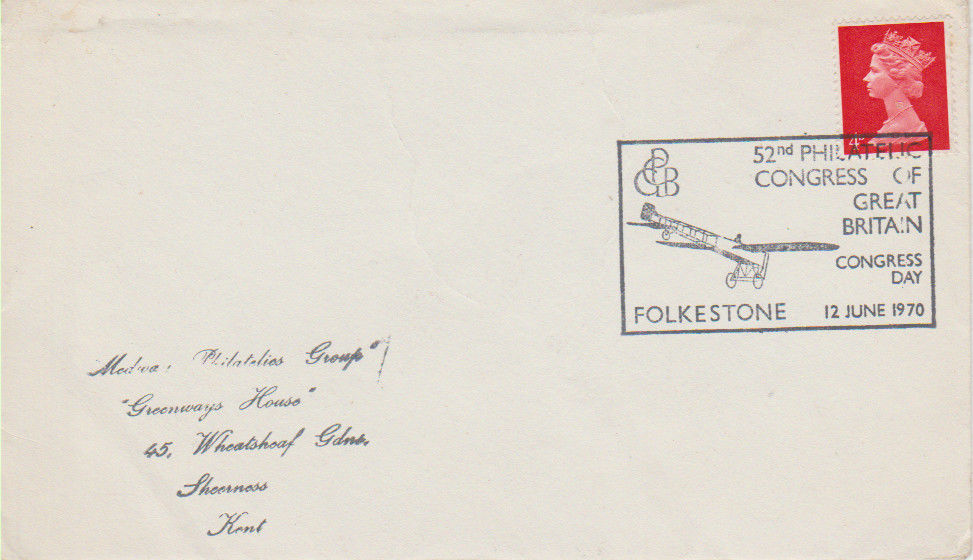 4D
52nd PHILATELIC
CONGRESS OF
GREAT
BRITAIN
CONGRESS
DAY
FOLKESTONE 12 JUNE 1970
Philatelics Group"
"Greenways House"
45, Wheatsheaf Gdns.
Sheerness
Kent